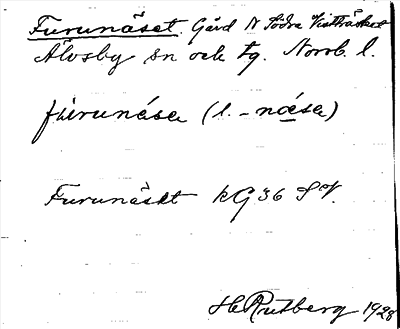 Furunäset. Gård N Södra Vistträsket
Älvsby sn och tg. Norrb. l.
fúrunása (l. -nǽsa)
Furunäset kG36 SV.
H Rutberg 1928